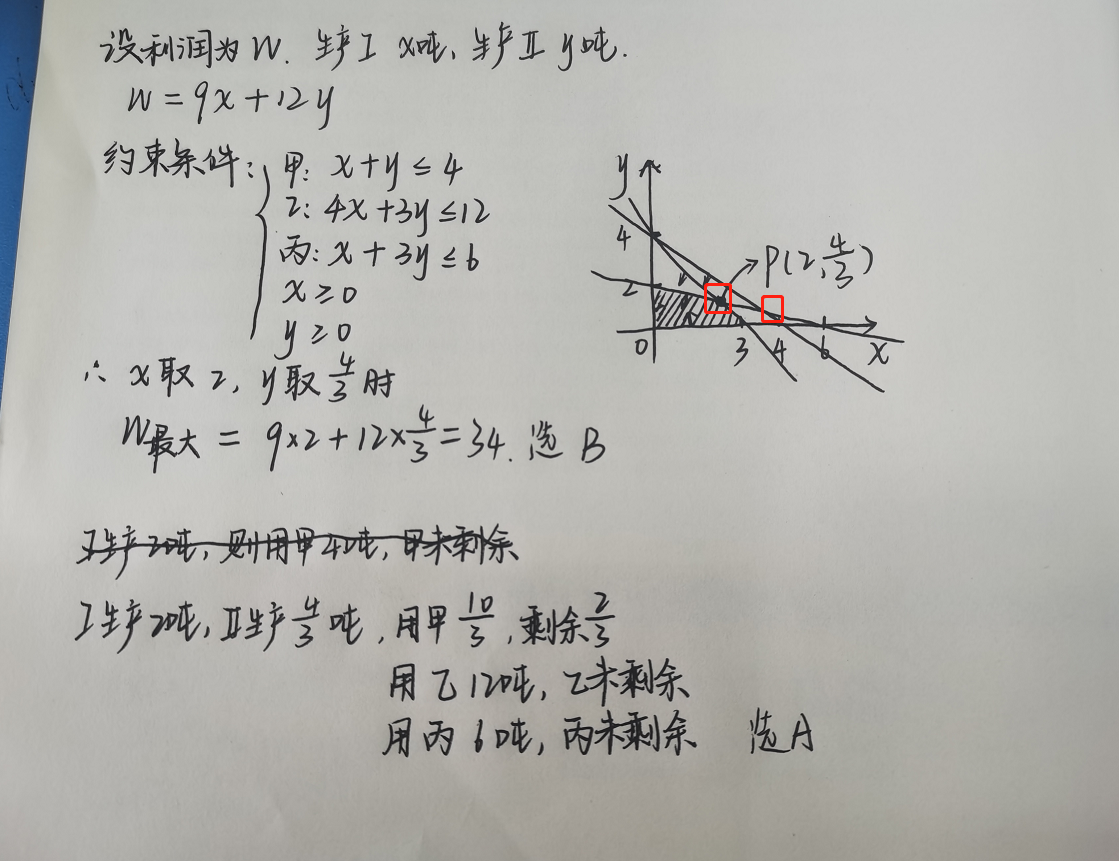 设利润为W.生产Ⅰ x吨,生产Ⅱ y吨.
W=9x+12y
约束条件:
甲: x+y≤4
乙: 4x+3y≤12
丙: x+3y≤6
x≥0
y≥0
y
4
2
0
3
4
6
x
P(2,4/3)
∴ x取2, y取4/3时
W最大 = 9×2+12×4/3=34. 选B
Ⅰ生产2吨,则用甲4吨,甲未剩余
Ⅰ生产2吨,Ⅱ生产4/3吨,用甲10/3,剩余2/3
用乙12吨,乙未剩余
用丙6吨,丙未剩余 选A